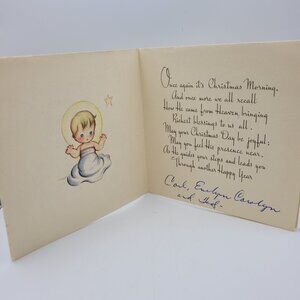 Once again it's Christmas Morning,
And once more we all recall
How He came from Heaven, bringing
Richest blessings to us all.
May your Christmas Day be joyful;
May you feel His presence near,
As He guides your steps and leads you
Through another Happy Year
Carl, Evelyn Carolyn
and